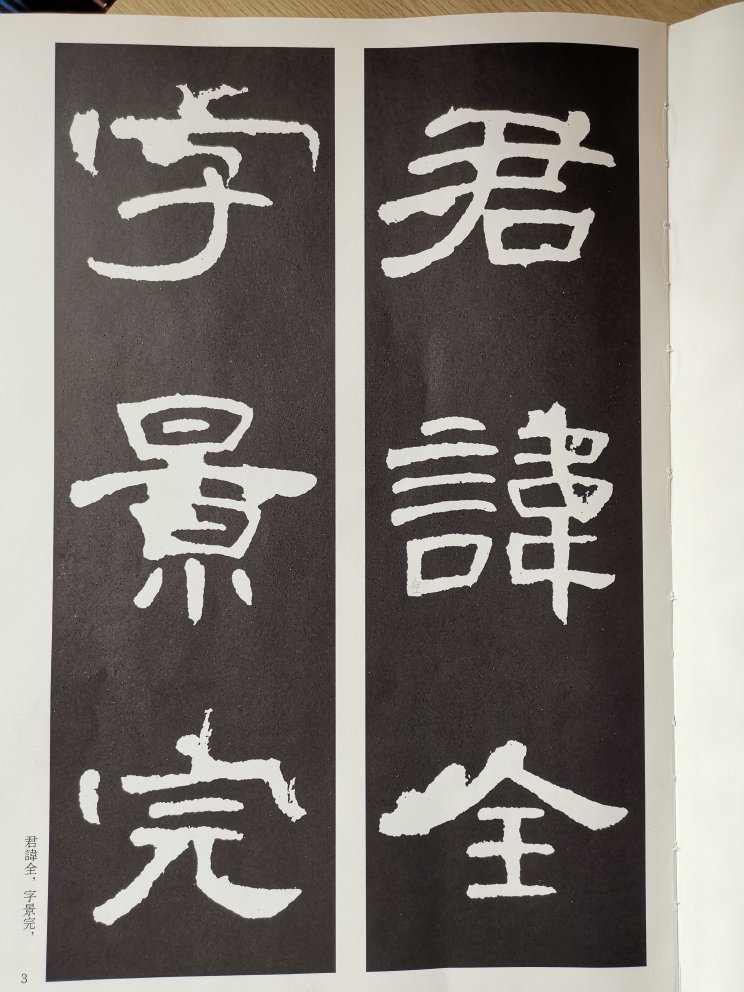 君諱全
字景完
君諱全，字景完，
3